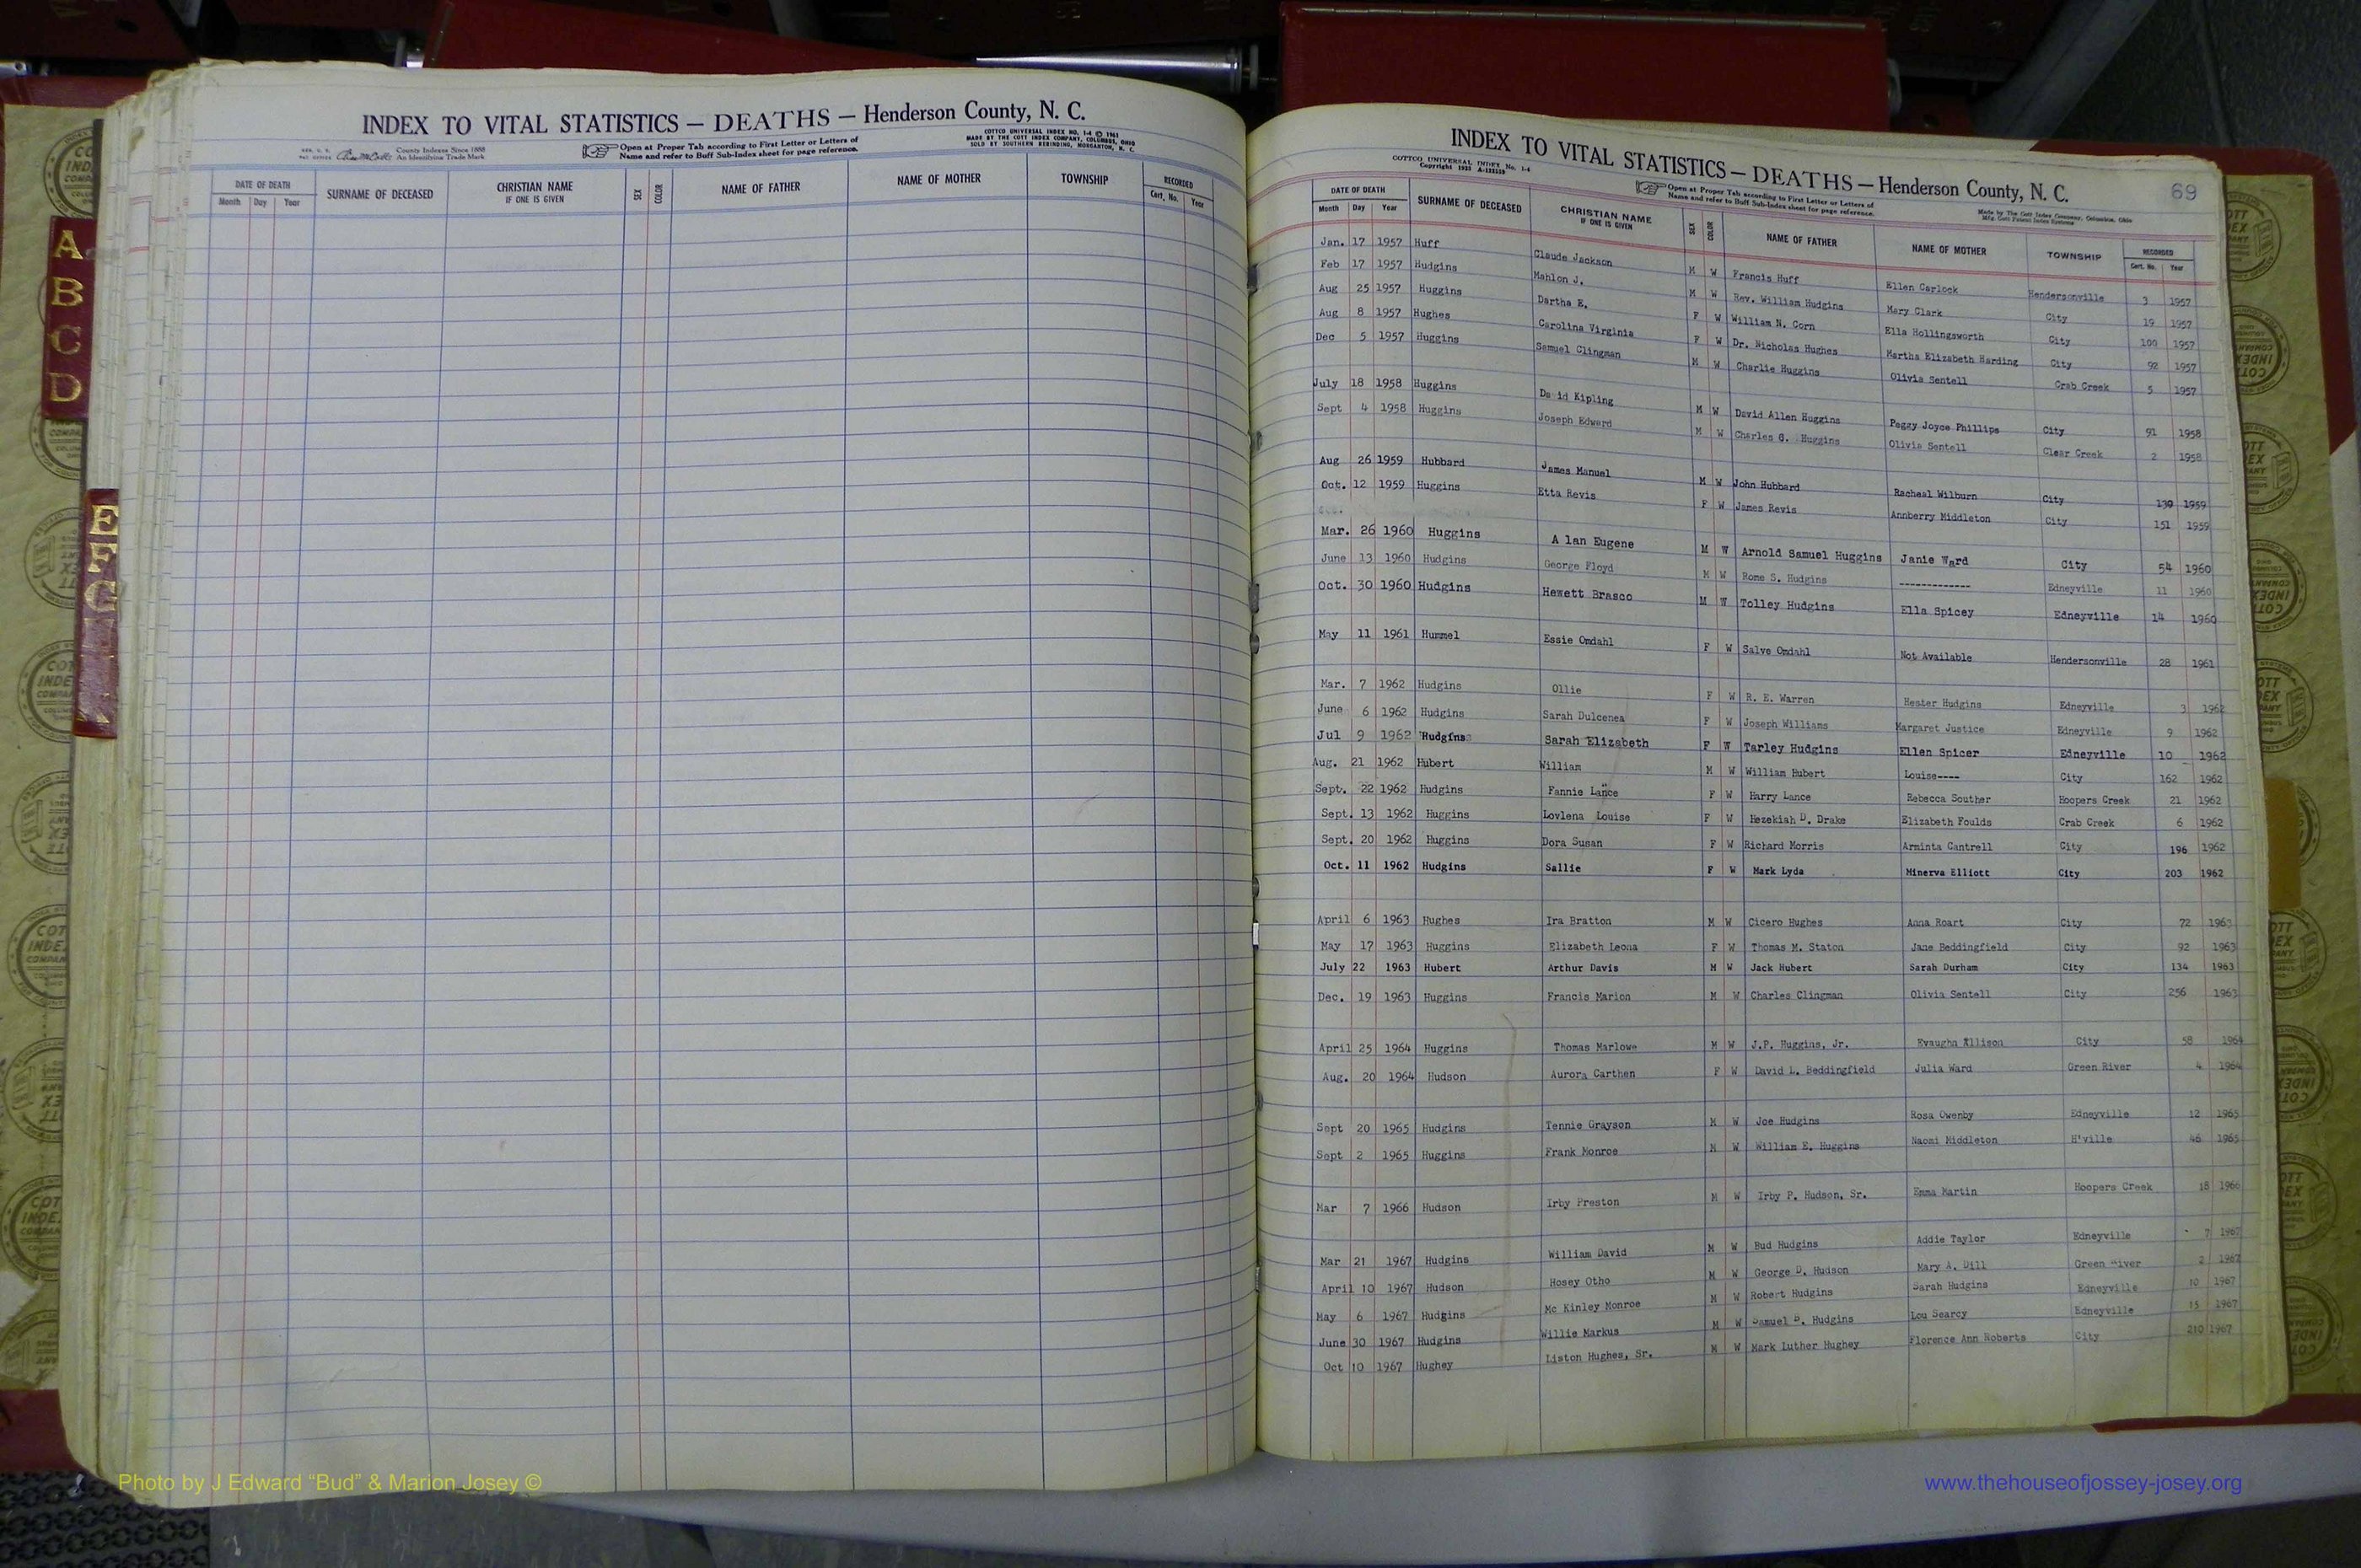 INDEX TO VITAL STATISTICS — DEATHS — Henderson County, N. C.
COTTCO UNIVERSAL INDEX NO. 1-4 © 1961
MADE BY THE COTT INDEX COMPANY, COLUMBUS, OHIO
SOLD BY SOUTHERN REBINDING, MORGANTON, N. C.
County Indexes Since 1888
An Identifying Trade Mark
Open at Proper Tab according to First Letter or Letters of
Name and refer to Buff Sub-Index sheet for page reference.
DATE OF DEATH SURNAME OF DECEASED CHRISTIAN NAME IF ONE IS GIVEN SEX COLOR NAME OF FATHER NAME OF MOTHER TOWNSHIP RECORDED
Month Day Year Cert. No. Year
A
B
C
D
E
F
G
INDEX TO VITAL STATISTICS — DEATHS — Henderson County, N. C. 69
COTTCO UNIVERSAL INDEX No. 1-4
Open at Proper Tab according to First Letter or Letters of
Name and refer to Buff Sub-Index sheet for page reference.
Made by The Cott Index Company, Columbus, Ohio
DATE OF DEATH SURNAME OF DECEASED CHRISTIAN NAME IF ONE IS GIVEN SEX COLOR NAME OF FATHER NAME OF MOTHER TOWNSHIP RECORDED
Month Day Year Cert. No. Year
Jan. 17 1957 Huff Claude Jackson M W Francis Huff Ellen Carlock Hendersonville 3 1957
Feb 17 1957 Hudgins Mahlon J. M W Rev. William Hudgins Mary Clark City 19 1957
Aug 25 1957 Huggins Dartha E. F W William N. Corn Ella Hollingsworth City 100 1957
Aug 8 1957 Hughes Carolina Virginia F W Dr. Nicholas Hughes Martha Elizabeth Harding City 92 1957
Dec 5 1957 Huggins Samuel Clingman M W Charlie Huggins Olivia Sentell Crab Creek 5 1957
July 18 1958 Huggins David Kipling M W David Allen Huggins Peggy Joyce Phillips City 91 1958
Sept 4 1958 Huggins Joseph Edward M W Charles G. Huggins Olivia Sentell Clear Creek 2 1958
Aug 26 1959 Hubbard James Manuel M W John Hubbard Racheal Wilburn City 130 1959
Oct. 12 1959 Huggins Etta Revis F W James Revis Annberry Middleton City 151 1959
Mar. 26 1960 Huggins A lan Eugene M W Arnold Samuel Huggins Janie Ward City 54 1960
June 13 1960 Hudgins George Floyd M W Rome S. Hudgins ------------- Edneyville 11 1960
Oct. 30 1960 Hudgins Hewett Brasco M W Tolley Hudgins Ella Spicey Edneyville 14 1960
May 11 1961 Hummel Essie Omdahl F W Salve Omdahl Not Available Hendersonville 28 1961
Mar. 7 1962 Hudgins Ollie F W R. E. Warren Hester Hudgins Edneyville 3 1962
June 6 1962 Hudgins Sarah Dulcenea F W Joseph Williams Margaret Justice Edneyville 9 1962
Jul 9 1962 Hudgins Sarah Elizabeth F W Tarley Hudgins Ellen Spicer Edneyville 10 1962
Aug. 21 1962 Hubert William M W William Hubert Louise---- City 162 1962
Sept. 22 1962 Hudgins Fannie Lance F W Harry Lance Rebecca Souther Hoopers Creek 21 1962
Sept. 13 1962 Huggins Lovlena Louise F W Hezekiah D. Drake Elizabeth Foulds Crab Creek 6 1962
Sept. 20 1962 Huggins Dora Susan F W Richard Morris Arminta Cantrell City 196 1962
Oct. 11 1962 Hudgins Sallie F W Mark Lyda Minerva Elliott City 203 1962
April 6 1963 Hughes Ira Bratton M W Cicero Hughes Anna Roart City 72 1963
May 17 1963 Huggins Elizabeth Leona F W Thomas M. Staton Jane Beddingfield City 92 1963
July 22 1963 Hubert Arthur Davis M W Jack Hubert Sarah Durham City 134 1963
Dec. 19 1963 Huggins Francis Marion M W Charles Clingman Olivia Sentell City 256 1963
April 25 1964 Huggins Thomas Marlowe M W J.P. Huggins, Jr. Evaughn Allison City 58 1964
Aug. 20 1964 Hudson Aurora Carthen F W David L. Beddingfield Julia Ward Green River 4 1964
Sept 20 1965 Hudgins Tennie Grayson M W Joe Hudgins Rosa Owenby Edneyville 12 1965
Sept 2 1965 Huggins Frank Monroe M W William E. Huggins Naomi Middleton H'ville 46 1965
Mar 7 1966 Hudson Irby Preston M W Irby P. Hudson, Sr. Emma Martin Hoopers Creek 18 1966
Mar 21 1967 Hudgins William David M W Bud Hudgins Addie Taylor Edneyville 7 1967
April 10 1967 Hudson Hosey Otho M W George D. Hudson Mary A. Dill Green River 2 1967
May 6 1967 Hudgins Mc Kinley Monroe M W Robert Hudgins Sarah Hudgins Edneyville 10 1967
June 30 1967 Hudgins Willie Markus M W Samuel B. Hudgins Lou Searcy Edneyville 15 1967
Oct 10 1967 Hughey Liston Hughes, Sr. M W Mark Luther Hughey Florence Ann Roberts City 210 1967
Photo by J Edward “Bud” & Marion Josey ©
www.thehouseofjossey-josey.org